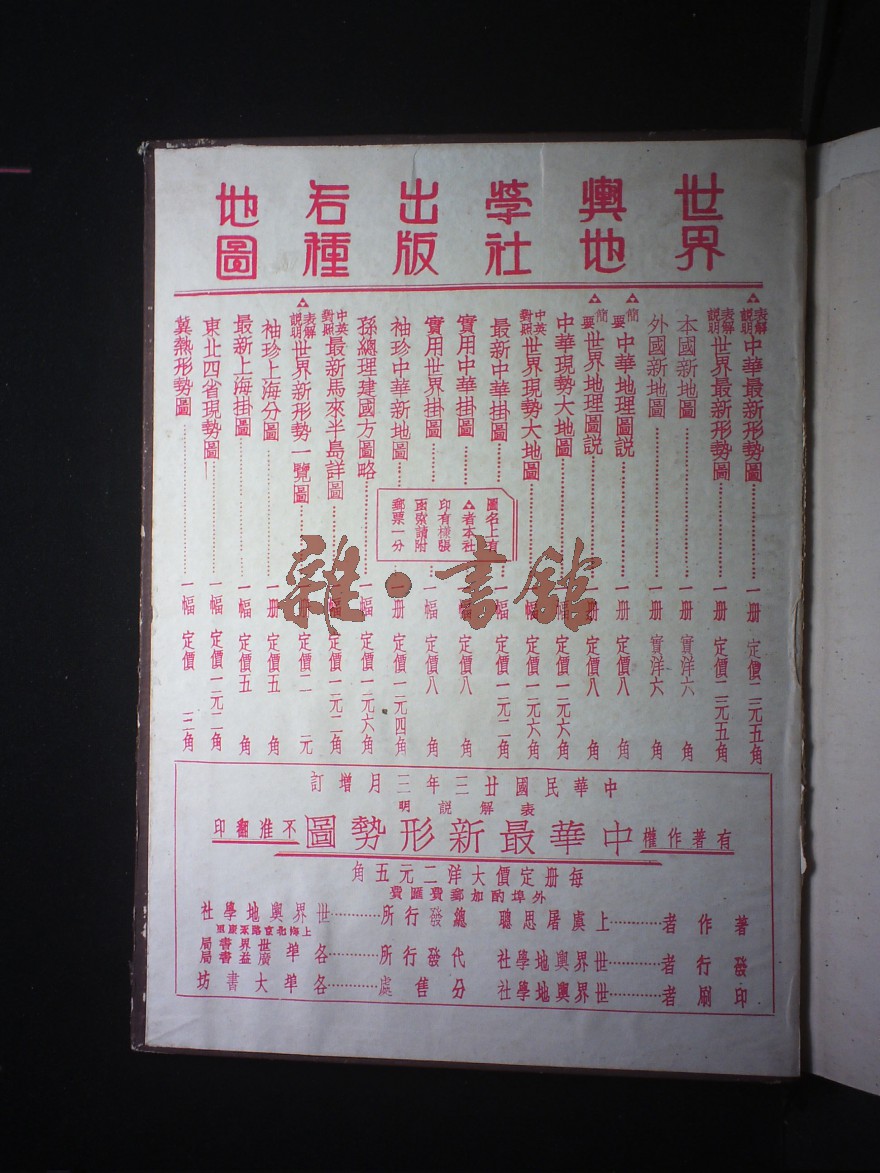 世界輿地學社出版各種地圖
△表解說明中華最新形勢圖……一册 定價二元五角
表解說明世界最新形勢圖……一册 定價二元五角
本國新地圖……一册 實洋六角
外國新地圖……一册 實洋六角
△簡要中華地理圖說……一册 定價八角
△簡要世界地理圖說……一册 定價八角
中華現勢大地圖……一幅 定價一元六角
中英對照世界現勢大地圖……一幅 定價一元六角
最新中華掛圖……一幅 定價一元二角
實用中華掛圖……一幅 定價八角
實用世界掛圖……一幅 定價八角
袖珍中華新地圖……一册 定價一元四角
孫總理建國方圖略……一幅 定價一元六角
中英對照最新馬來半島詳圖……一幅 定價一元二角
△表解說明世界新形勢一覽圖……一册 定價二元
袖珍上海分圖……一册 定價五角
最新上海掛圖……一幅 定價五角
東北四省現勢圖……一幅 定價一元二角
冀熱形勢圖……一幅 定價三角
圖名上有
△者本社
印有樣張
函索請附
郵票一分
雜·書館
中華民國廿三年三月增訂
表解說明
有著作權 中華最新形勢圖 不准翻印
每册定價大洋二元五角
外埠酌加郵費匯費
著作者……上虞屠思聰
發行者……世界輿地學社
印刷者……世界輿地學社
總發行所……世界輿地學社
上海北京路永康里
代發行所……各埠世界書局廣益書局
分售處……各埠大書坊